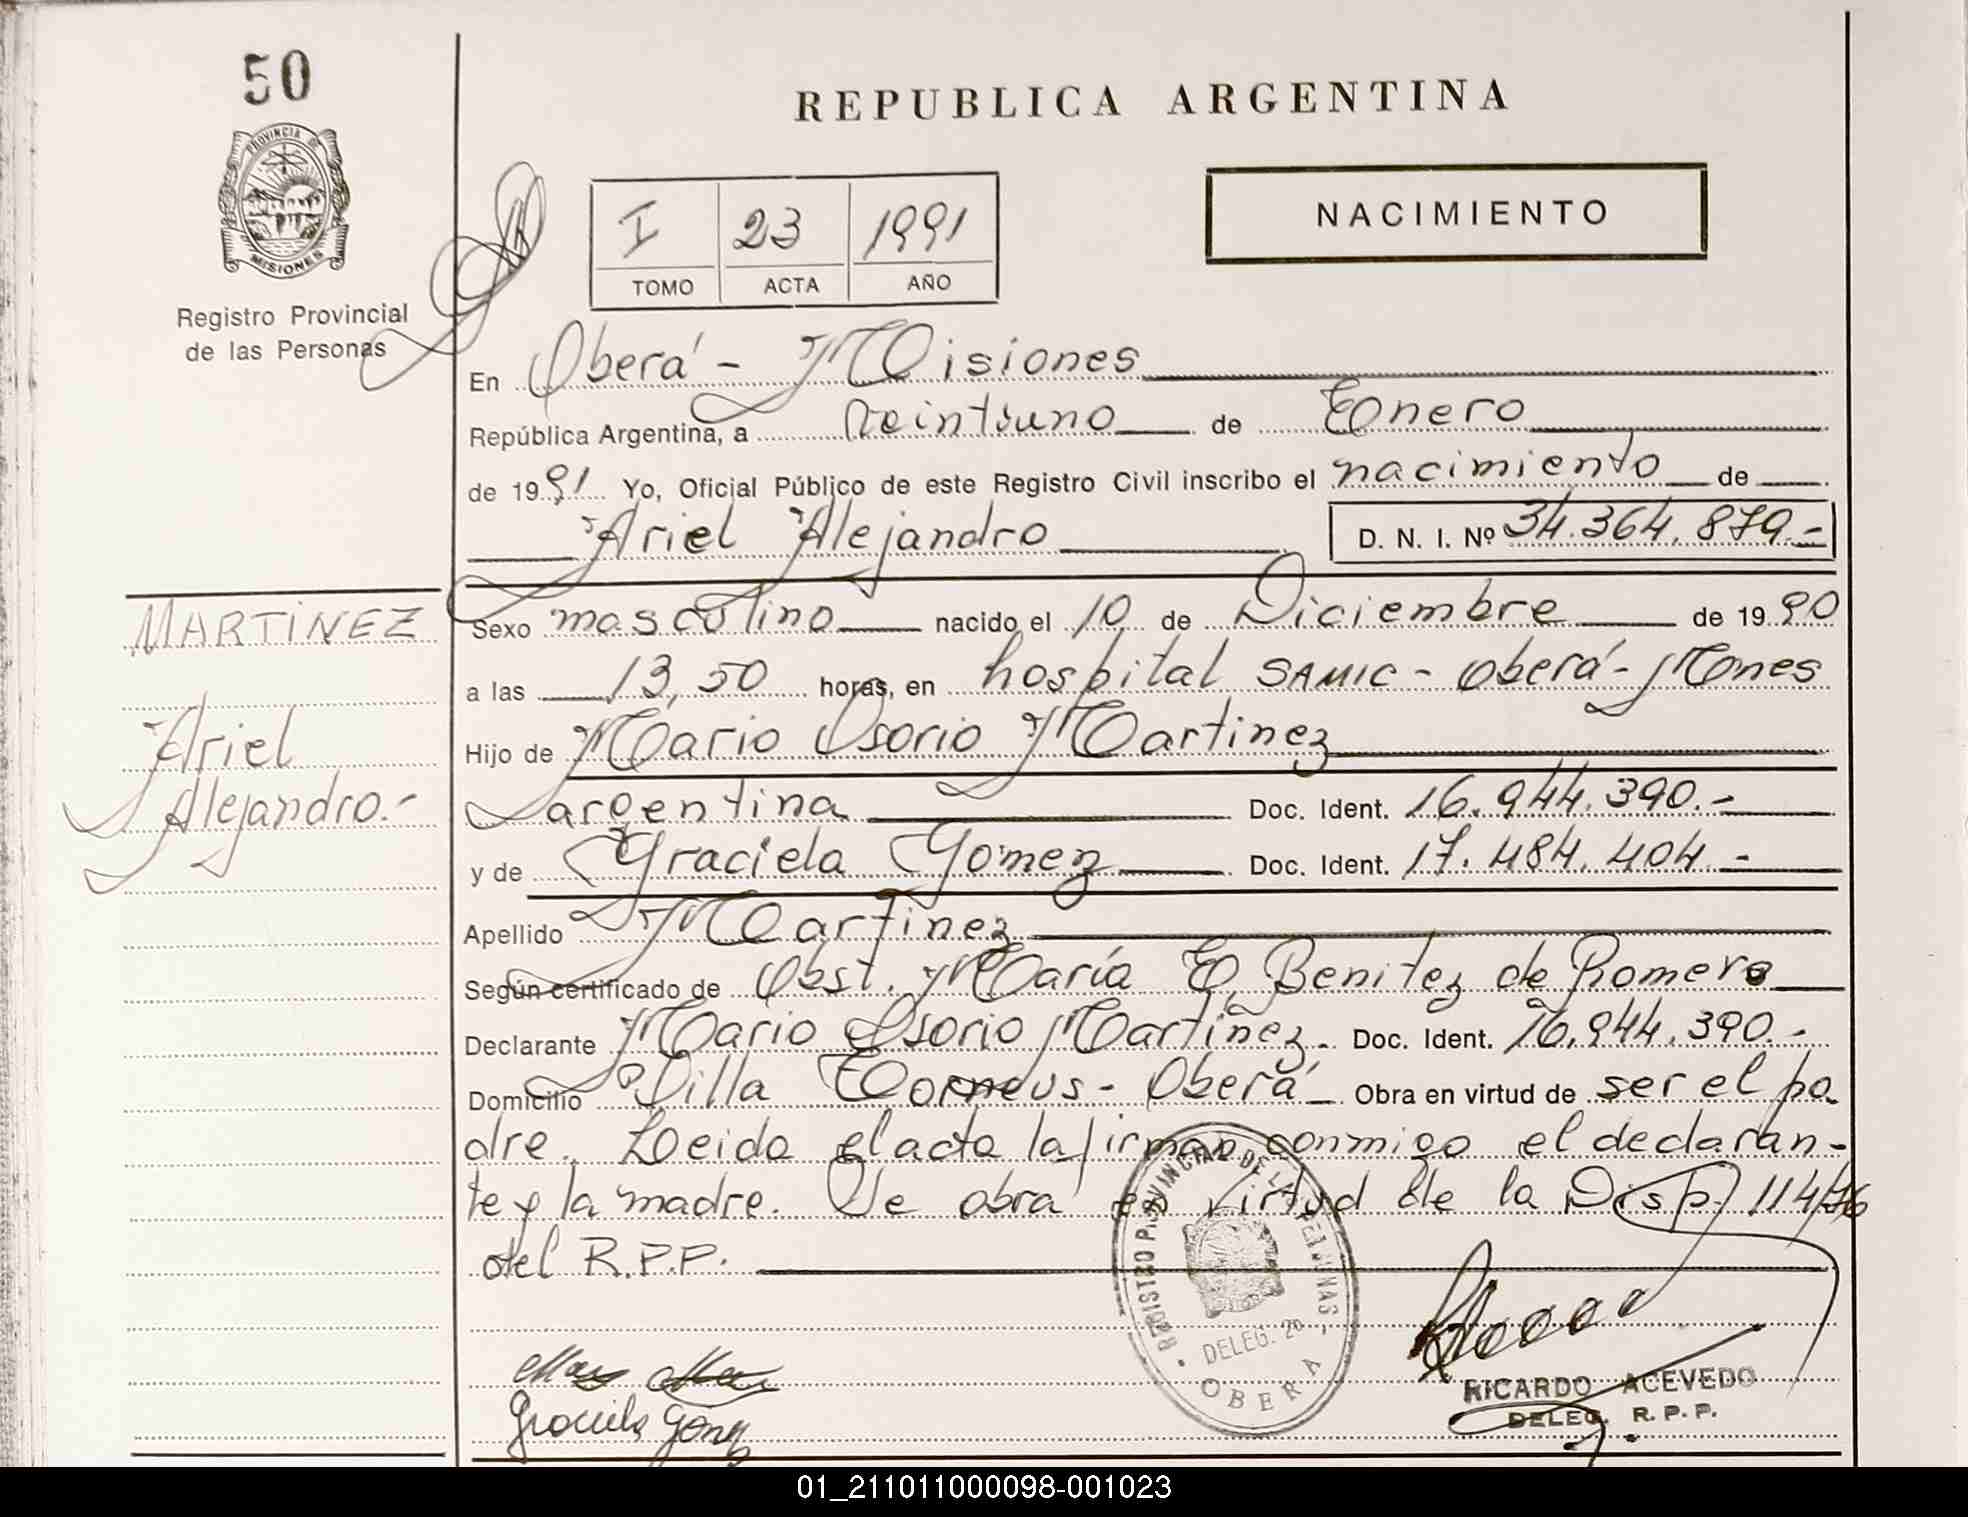 50
PROVINCIA DE
MISIONES
Registro Provincial
de las Personas
REPUBLICA ARGENTINA
I 23 1991
TOMO ACTA AÑO
NACIMIENTO
En Oberá - Misiones
República Argentina, a Veintiuno de Enero
de 1991 Yo, Oficial Público de este Registro Civil inscribo el nacimiento de
Ariel Alejandro D. N. I. Nº 34.364.879.-
MARTINEZ
Ariel
Alejandro.-
Sexo masculino nacido el 10 de Diciembre de 1990
a las 13,50 horas, en hospital SAMIC - Oberá - Mnes
Hijo de Mario Osorio Martinez
argentina Doc. Ident. 16.944.390.-
y de Graciela Gomez Doc. Ident. 17.484.404.-
Apellido Martinez
Según certificado de Obst. María E. Benitez de Romero
Declarante Mario Osorio Martinez. Doc. Ident. 16.944.390.-
Domicilio Villa - Oberá Obra en virtud de ser el pa-
dre. Leida el acta la firman conmigo el declaran-
te y la madre. Se obra en virtud de la Disp. 114/76
del R.P.P.
REGISTRO PROVINCIAL DE LAS PERSONAS
DELEG. 20
OBERA
Graciela Gomez
RICARDO ACEVEDO
DELEG. R.P.P.
01_211011000098-001023